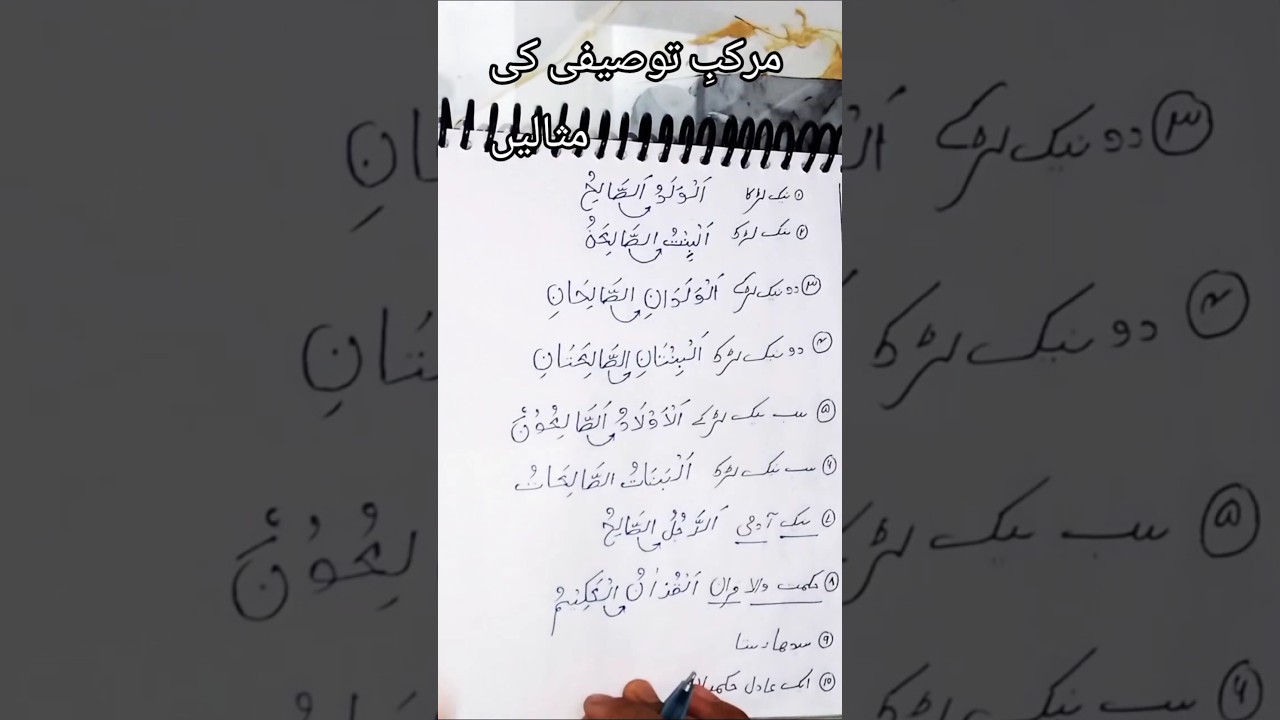 مرکبِ توصیفی کی
مثالیں
① نیک لڑکا اَلْوَلَدُ اَلصَّالِحُ
② نیک لڑکی اَلْبِنْتُ الصَّالِحَةُ
③ دو نیک لڑکے اَلْوَلَدَانِ الصَّالِحَانِ
④ دو نیک لڑکیاں اَلْبِنْتَانِ الصَّالِحَتَانِ
⑤ سب نیک لڑکے اَلْاَوْلَادُ اَلصَّالِحُوْنَ
⑥ سب نیک لڑکیاں اَلْبَنَاتُ الصَّالِحَاتُ
⑦ نیک آدمی اَلرَّجُلُ الصَّالِحُ
⑧ حکمت والا قرآن اَلْقُرْاٰنُ الْحَكِيْمُ
⑨ سیدھا رستا
⑩ ایک عادل